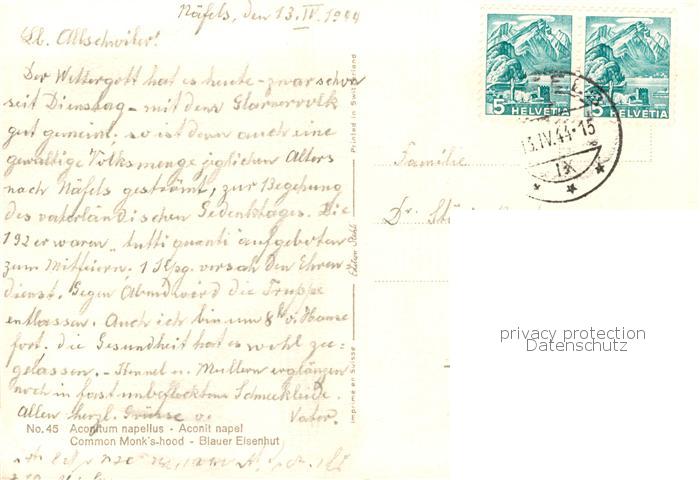 Näfels, den 13. IV. 1944
Lb. Allschwiler!
Der Wettergott hat es heute - zwar schon
seit Dienstag - mit dem Glarnervolk
gut gemeint. so ist denn auch eine
gewaltige Volksmenge jeglichen Alters
nach Näfels geströmt, zur Begehung
des vaterländischen Gedenktages. Die
192er waren "tutti quanti" aufgeboten
zum Mitfeiern. 1 Kpg. versah den Ehren
dienst. Gegen Abend wird die Truppe
entlassen. Auch ich bin um 8 h v. Hause
fort. die Gesundheit hat es wohl zu-
gelassen. - Kennel u. Mullern erglänzen
noch in fast unbeflecktem Schneekleide.
Allen herzl. Grüsse v. Vater.
No. 45 Aconitum napellus - Aconit napel
Common Monk's-hood - Blauer Eisenhut
Printed in Switzerland
Imprimé en Suisse
Familie
Dr.
5 HELVETIA
5 HELVETIA
13.IV.44-15
IX
privacy protection
Datenschutz